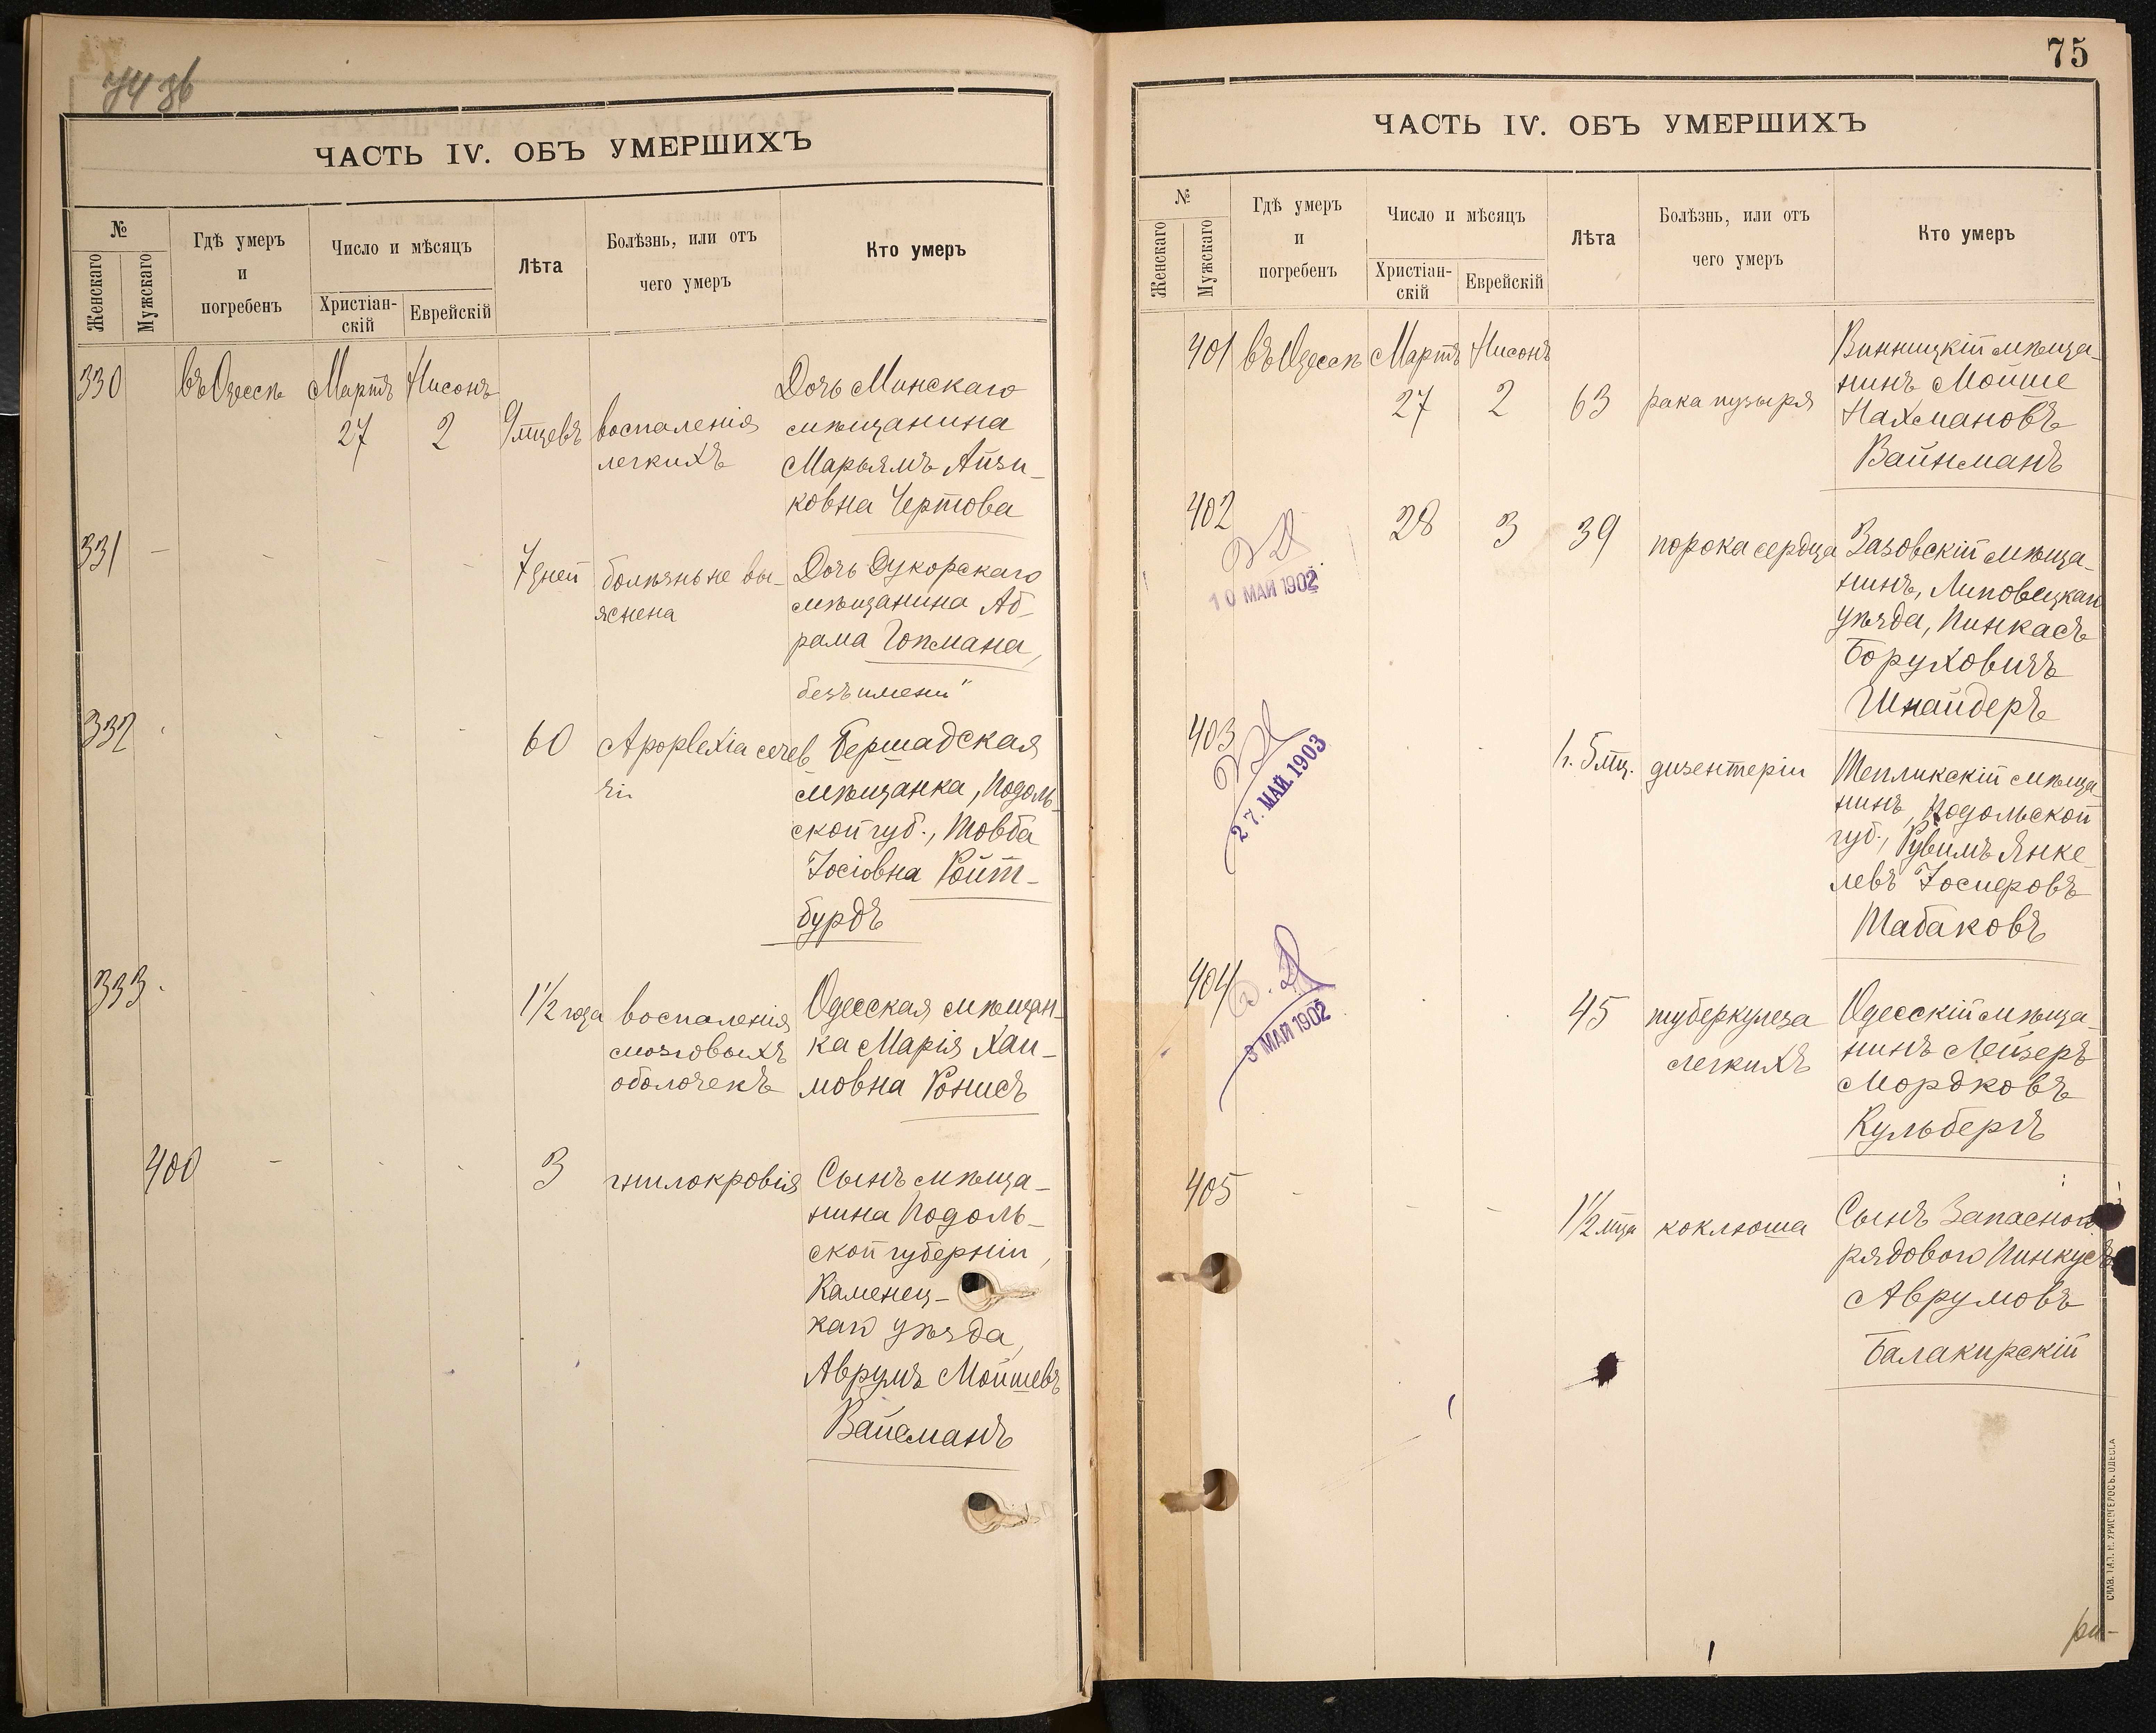 74 об
ЧАСТЬ IV. ОБЪ УМЕРШИХЪ
№
Женскаго
Мужскаго
Гдѣ умеръ
и
погребенъ
Число и мѣсяцъ
Христіан-
скій
Еврейскій
Лѣта
Болѣзнь, или отъ
чего умеръ
Кто умеръ
330
въ Одессѣ
Мартъ
27
Нисонъ
2
9 мцевъ
воспаленія
легкихъ
Дочь Минскаго
мѣщанина
Марьямъ Айзи-
ковна Чертова
331
7 дней
болѣзнь не вы-
яснена
Дочь Дукорскаго
мѣщанина Аб-
рама Гопмана,
безъ имени"
332
60
Apoplexia cereb
ri
Бершадская
мѣщанка, Подоль-
ской губ., Товба
Іосіовна Ройт-
бурдъ
333
1½ года
воспаленія
мозговыхъ
оболочекъ
Одесская мѣщан-
ка Марія Хаи-
мовна Ронисъ
400
3
гнилокровія
Сынъ мѣща-
нина Подоль-
ской губерніи,
Каменец-
каго уѣзда,
Аврумъ Мойшевъ
Вайсманъ
75
ЧАСТЬ IV. ОБЪ УМЕРШИХЪ
№
Женскаго
Мужскаго
Гдѣ умеръ
и
погребенъ
Число и мѣсяцъ
Христіан-
скій
Еврейскій
Лѣта
Болѣзнь, или отъ
чего умеръ
Кто умеръ
401
въ Одессѣ
Мартъ
27
Нисонъ
2
63
рака пузыря
Винницкій мѣща-
нинъ Мойше
Нахмановъ
Вайнманъ
402
10 МАЙ 1902
28
3
39
порока сердца
Зазовскій мѣща-
нинъ, Липовецкаго
уѣзда, Пинкасъ
Боруховичъ
Шнайдеръ
403
27. МАЙ. 1903
1 г. 5 мц.
дизентеріи
Тепликскій мѣща-
нинъ, Подольской
губ., Рувимъ Янке-
левъ Іосиеровъ
Табаковъ
404
3 МАЙ 1902
45
туберкулеза
легкихъ
Одесскій мѣща-
нинъ Лейзеръ
Мордковъ
Кульбергъ
405
1½ мца
коклюша
Сынъ Запасного
рядового Пинкусъ
Аврумовъ
Балакирскій
СЛАВ. ТИП. Н. ХРИСОГЕЛОСЪ. ОДЕССА